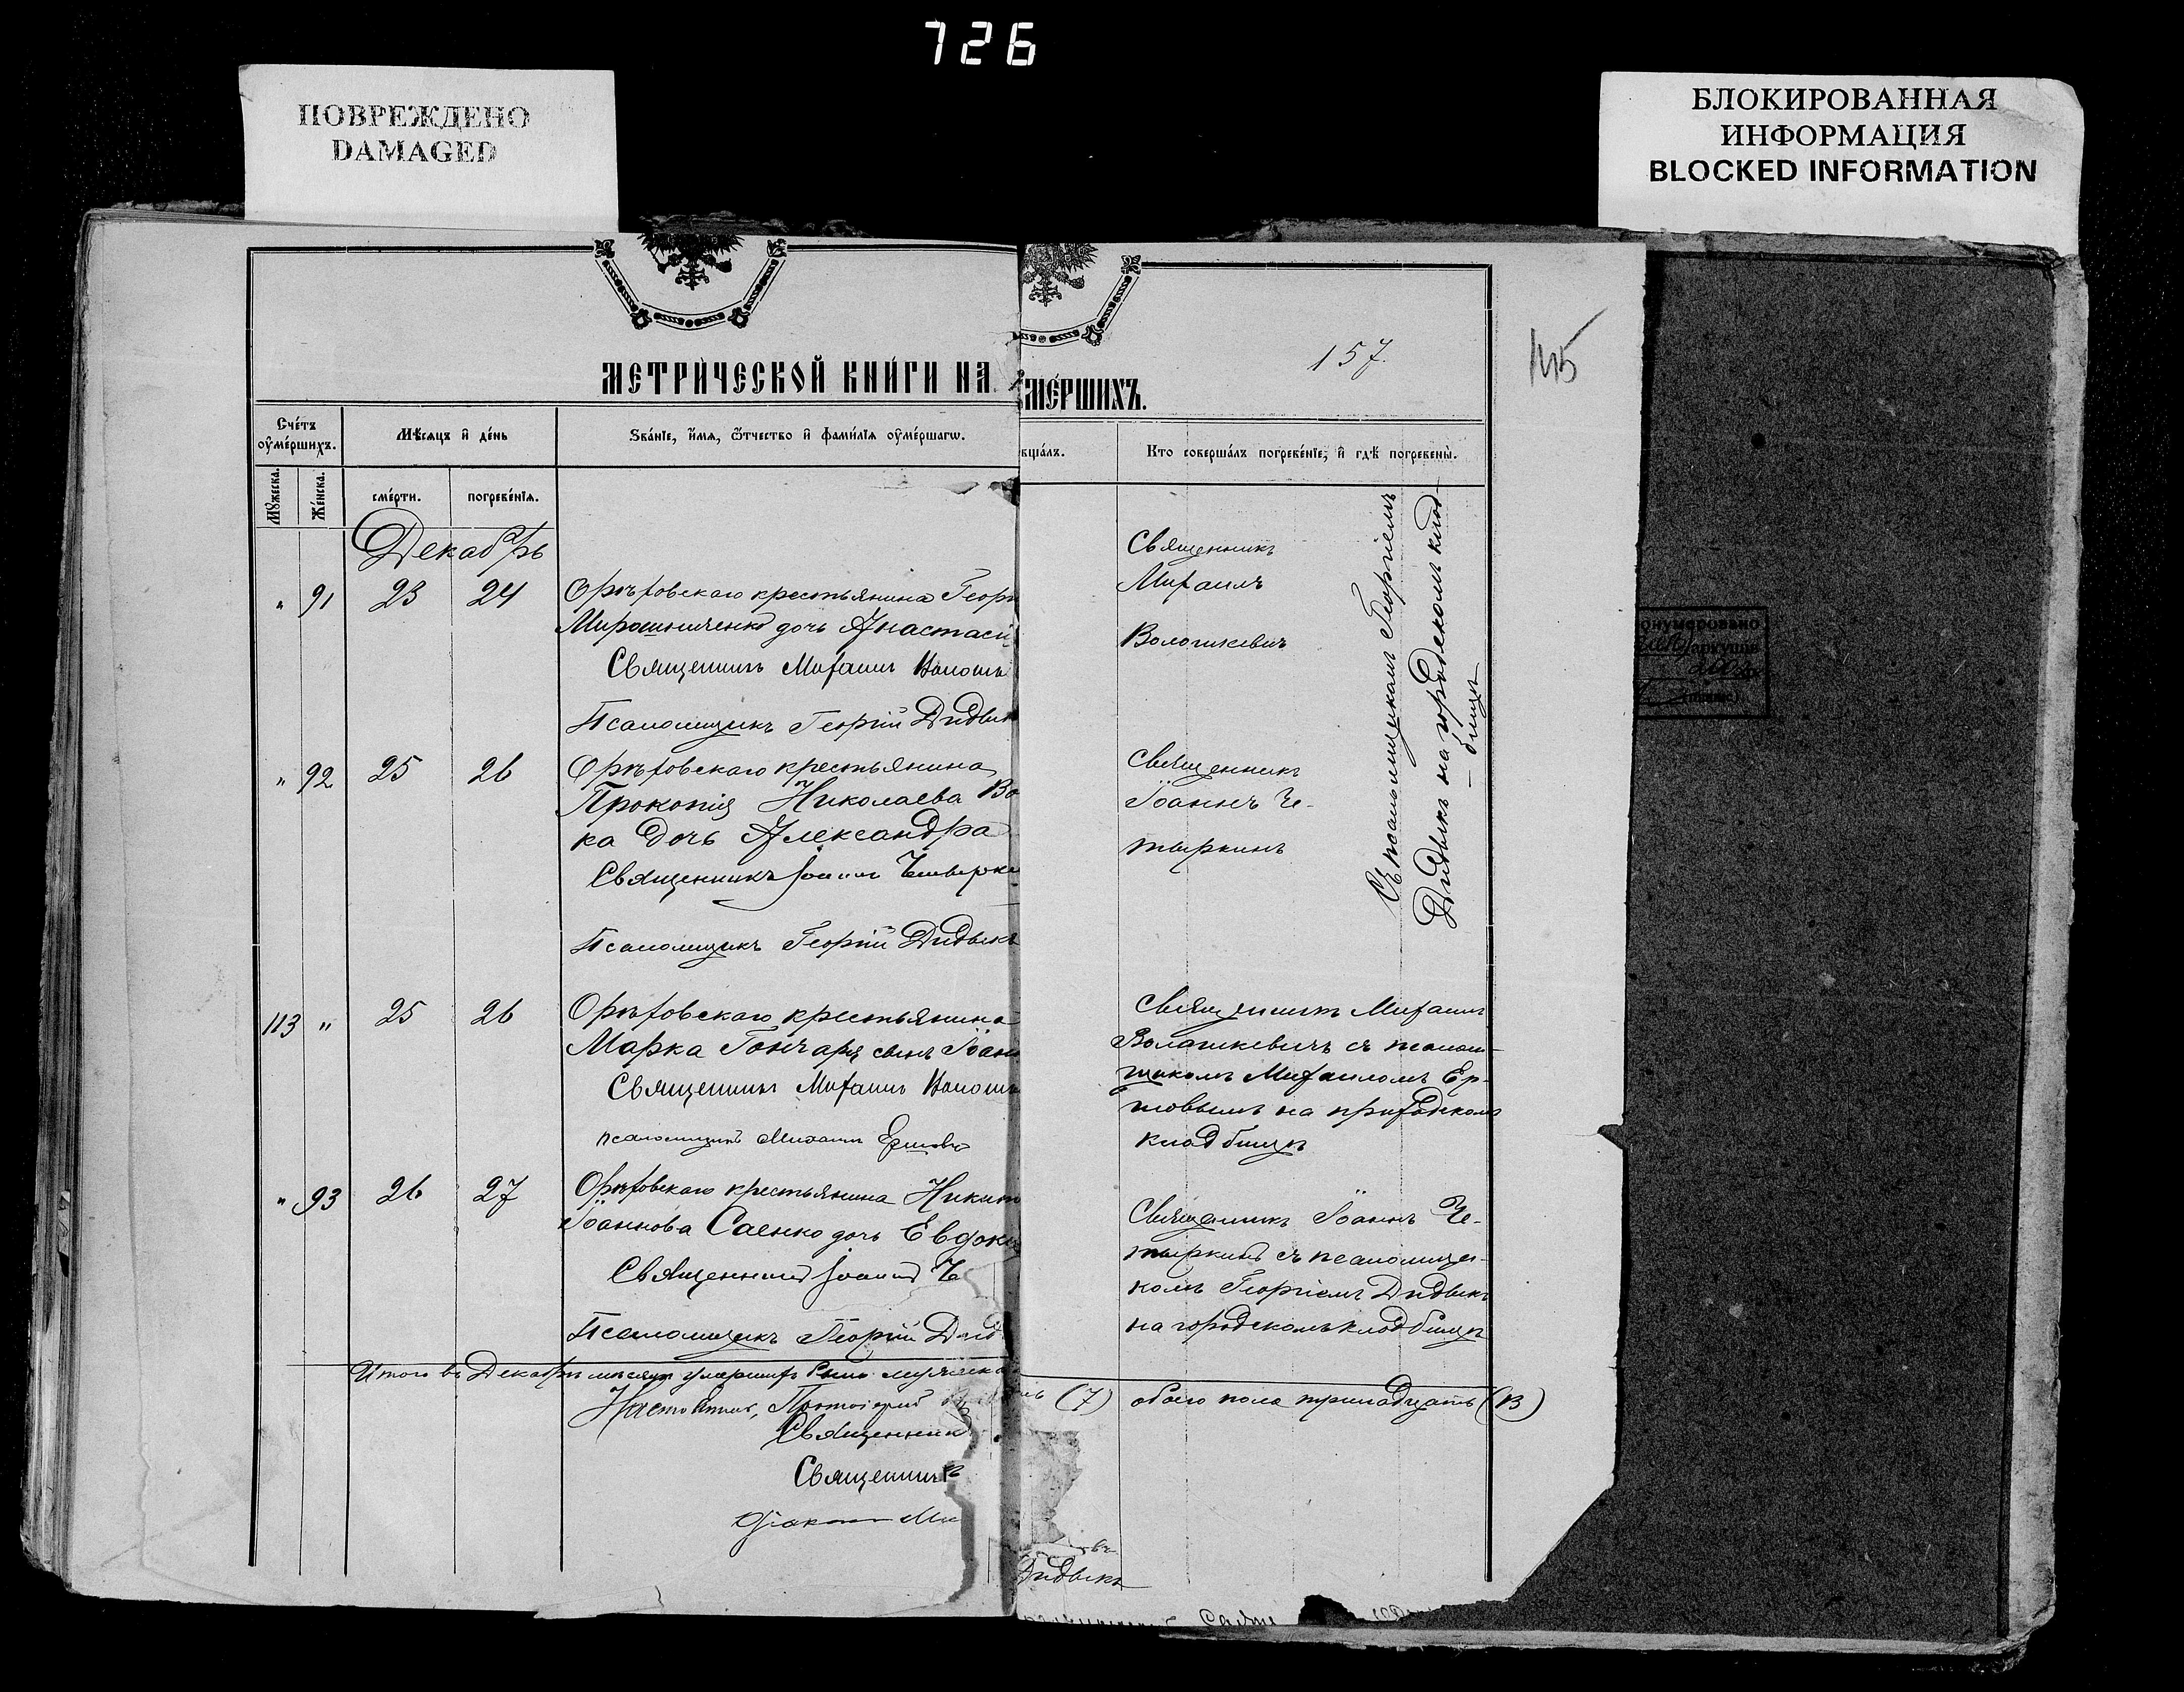 726
ПОВРЕЖДЕНО
DAMAGED
БЛОКИРОВАННАЯ
ИНФОРМАЦИЯ
BLOCKED INFORMATION
МЕТРИЧЕСКОЙ КНИГИ НА
МЕРШИХЪ.
157.
145
Счетъ оумершихъ.
Мѣсяцъ и день
Званіе, имя, отчество и фамилія оумершагω.
вшалъ.
Кто совершалъ погребеніе, и гдѣ погребены.
Мужеска.
Женска.
смерти.
погребенія.
Декабрь
" 91 23 24 Орѣховскаго крестьянина Геор
Мирошниченко дочь Анастасі
Священникъ Михаилъ Волош
Псаломщикъ Георгій Дидык
Священникъ
Михаилъ
Волошкевичъ
Съ псаломщикомъ Георгіемъ
Дидыкъ на городскомъ клад-
бищѣ
" 92 25 26 Орѣховскаго крестьянина
Прокопія Николаева Во
ка дочь Александра
Священникъ Іоаннъ Четырки
Псаломщикъ Георгій Дидыкъ
Священникъ
Іоаннъ Че-
тыркинъ
113 " 25 26 Орѣховскаго крестьянина
Марка Гончаря сынъ Іоан
Священникъ Михаилъ Волош
псаломщикъ Михаилъ Ершовъ
Священникъ Михаилъ
Волошкевичъ съ псалом-
щикомъ Михаиломъ Ер-
шовымъ на приходскомъ
кладбищѣ
" 93 26 27 Орѣховскаго крестьянина Никит
Іоаннова Саенко дочь Евдокі
Священникъ Іоаннъ Ч
Псаломщикъ Георгій Дид
Священникъ Іоаннъ Че-
тыркинъ съ псаломщи-
комъ Георгіемъ Дидыкъ
на городскомъ кладбищѣ
Итого въ Декабрѣ мѣсяцѣ умершихъ было мужеска
(7) обоего пола тринадцать (13)
Настоятель, Протоіерей
Священник
Священникъ
Діаконъ Ми
въ
Дидыкъ